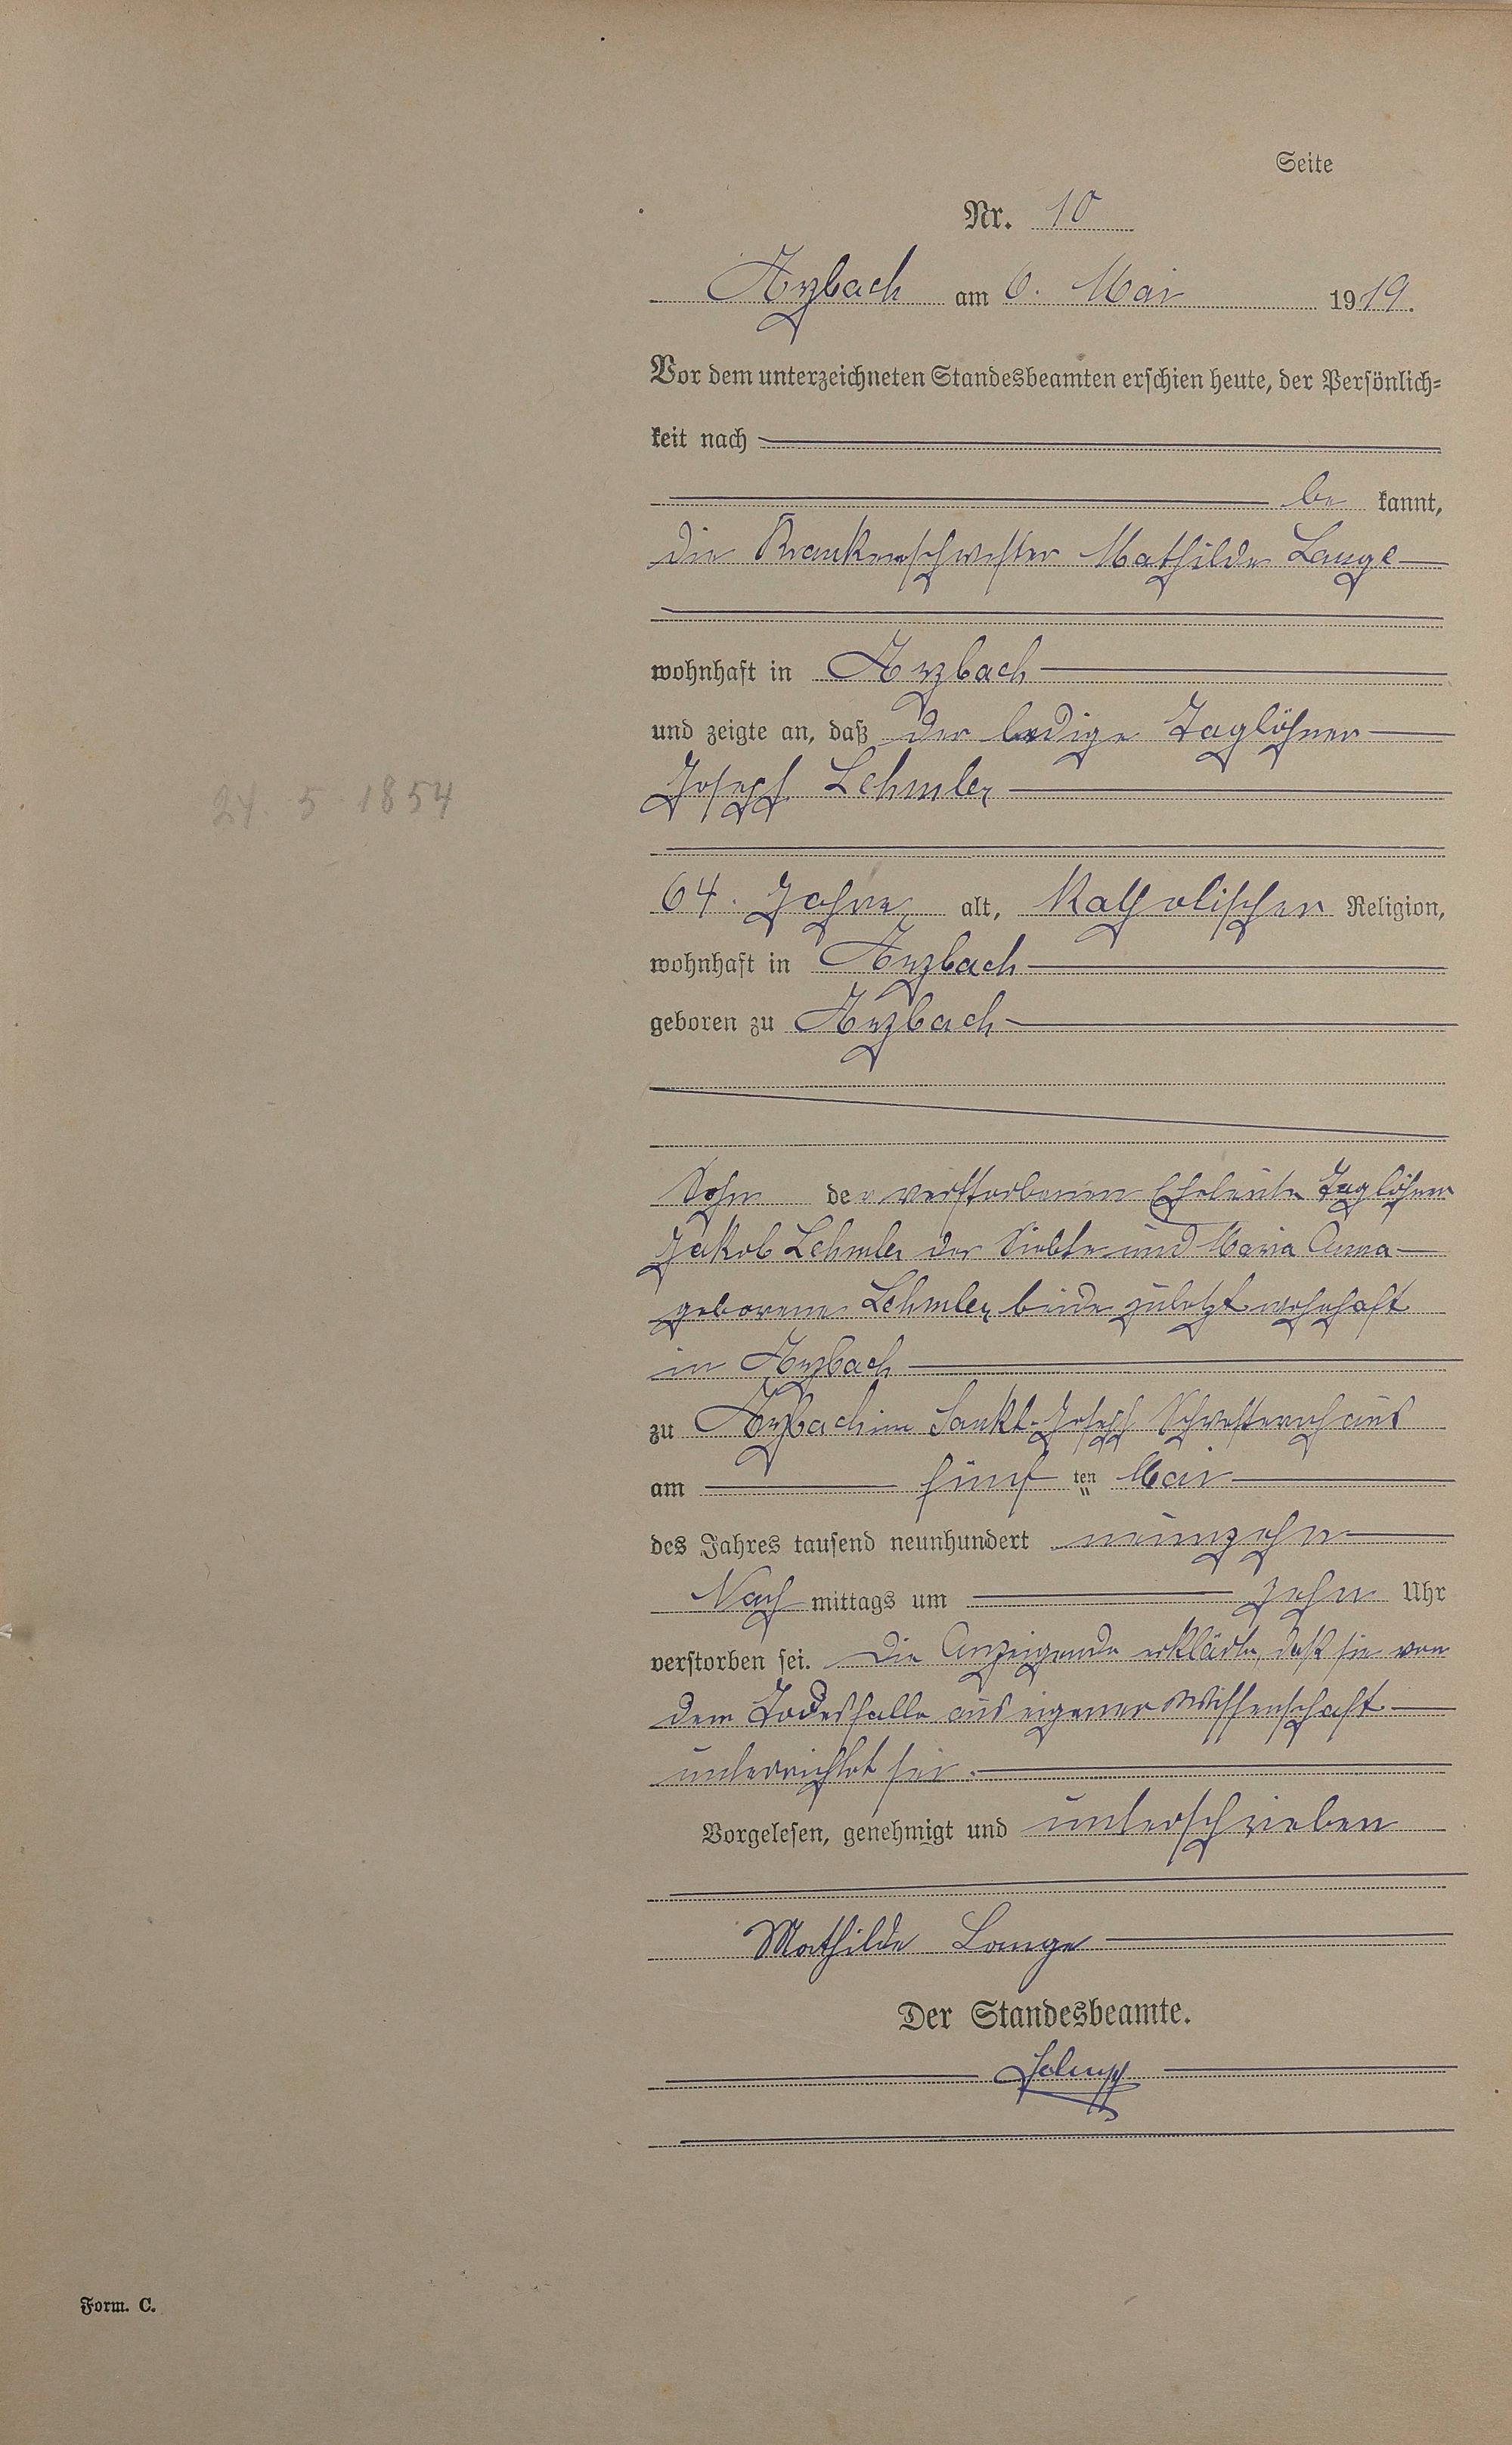 Seite
Nr. 10
Arzbach am 6. Mai 1919.
Vor dem unterzeichneten Standesbeamten erschien heute, der Persönlich-
keit nach
be kannt,
die Krankenschwester Mathilde Lange
wohnhaft in Arzbach
und zeigte an, daß der ledige Taglöhner
Joseph Lehmler
24. 5. 1854
64. Jahre alt, katholischer Religion,
wohnhaft in Arzbach
geboren zu Arzbach
Sohn der verstorbenen Eheleute Taglöhner
Jakob Lehmler der Siebte und Maria Anna
geborene Lehmler, beide zuletzt wohnhaft
in Arzbach
zu Arzbach im Sankt-Joseph Schwesternhaus
am fünf ten Mai
des Jahres tausend neunhundert neunzehn
Nach mittags um zehn Uhr
verstorben sei. Die Anzeigende erklärte, daß sie von
dem Todesfalle aus eigener Wissenschaft
unterrichtet sei.
Vorgelesen, genehmigt und unterschrieben
Mathilde Lange
Der Standesbeamte.
Form. C.